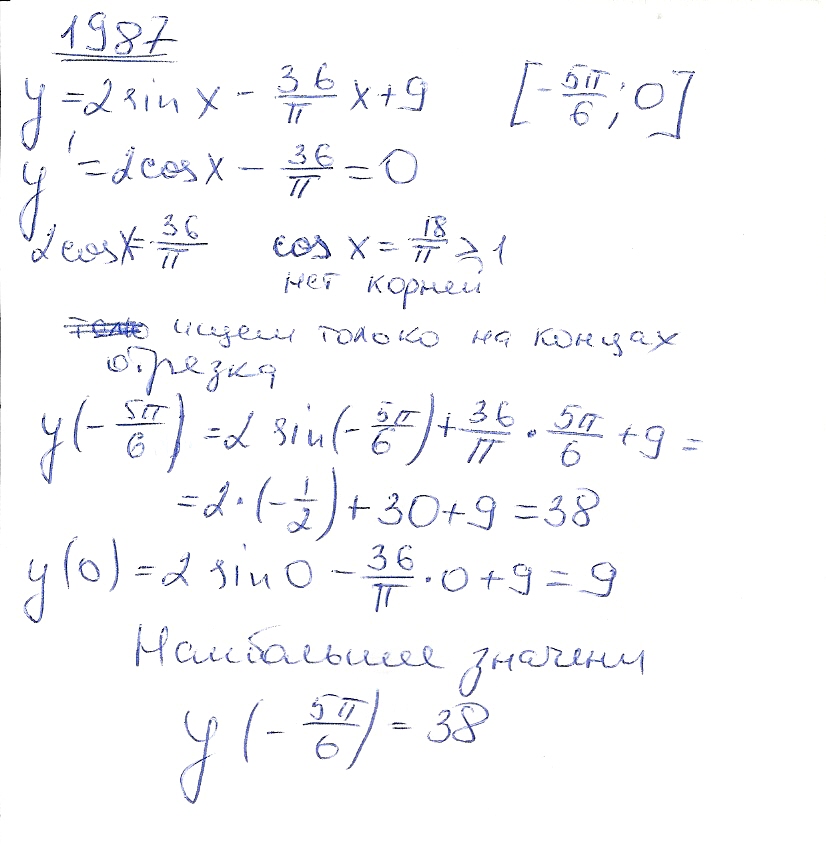 1987
y = 2 sin x - 36/π x + 9 [-5π/6; 0]
y' = 2cos x - 36/π = 0
2cos x = 36/π cos x = 18/π ⩾ 1
нет корней
ищем только на концах
отрезка
y(-5π/6) = 2 sin(-5π/6) + 36/π · 5π/6 + 9 =
= 2 · (-1/2) + 30 + 9 = 38
y(0) = 2 sin 0 - 36/π · 0 + 9 = 9
Наибольшее значени
y(-5π/6) = 38